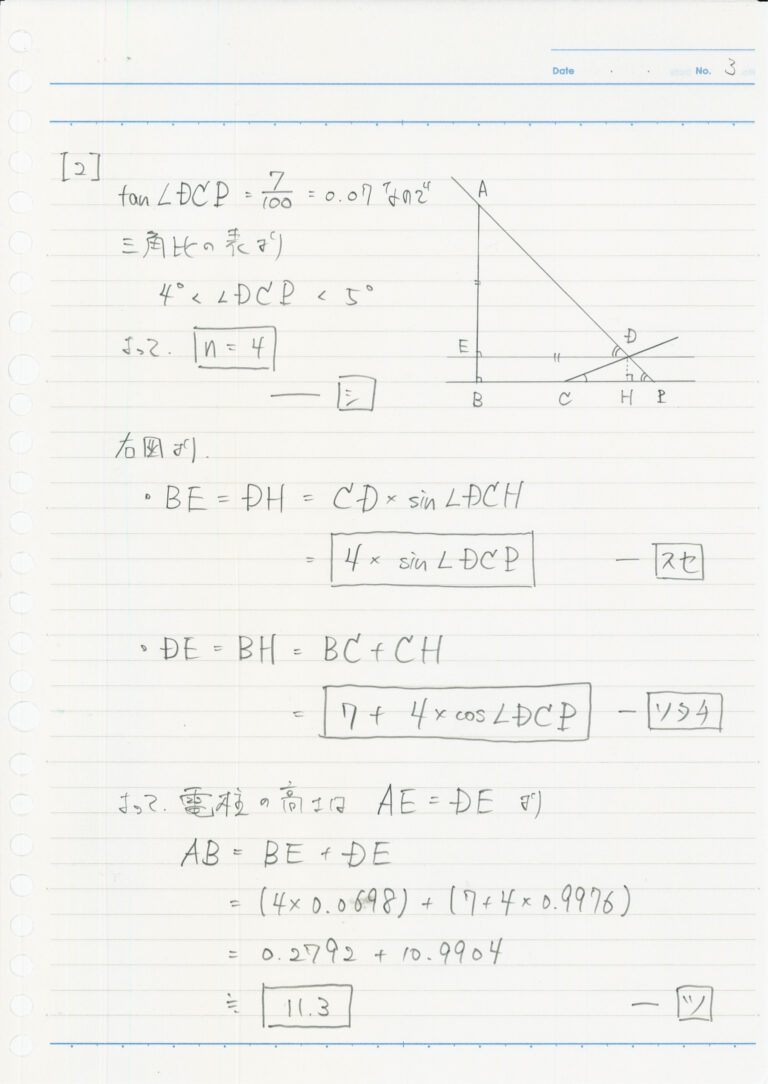 Date No. 3
[2]
tan∠DCP = 7/100 = 0.07 なので
三角比の表より
4° < ∠DCP < 5°
よって. n = 4
— シ
A
D
E
B C H P
右図より.
・BE = DH = CD × sin∠DCH
= 4 × sin∠DCP — スセ
・DE = BH = BC + CH
= 7 + 4 × cos∠DCP — ソタチ
よって. 電柱の高さは AE = DE より
AB = BE + DE
= (4 × 0.0698) + (7 + 4 × 0.9976)
= 0.2792 + 10.9904
≒ 11.3 — ツ